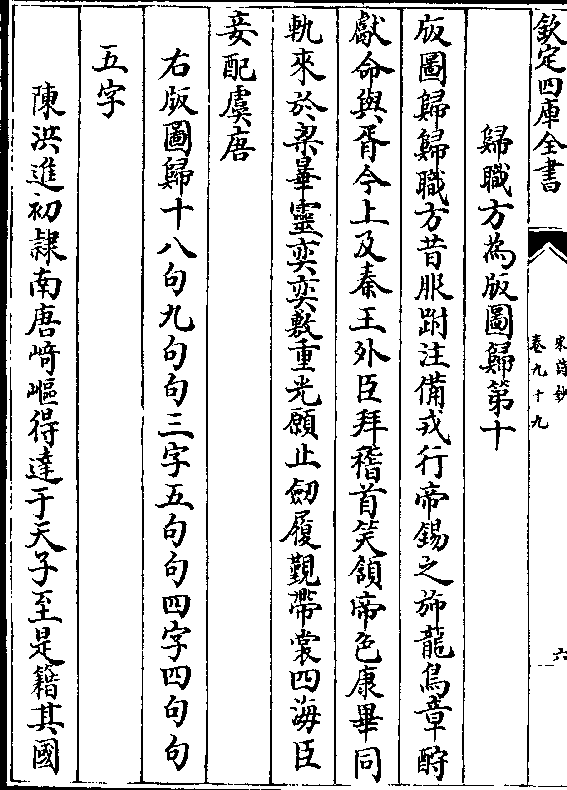 欽定四庫全書
宋詩鈔
卷九十九
六
歸職方為版圖歸第十
版圖歸歸職方昔服跗注備戎行帝錫之斾龍鳥章酹
獻命與胥今上及秦王外臣拜稽首笑頷帝色康畢同
軌來於梁畢靈奕奕敷重光願止劒履觀帶裳四海臣
妾配虞唐
右版圖歸十八句九句句三字五句句四字四句句
五字
陳洪進初隷南唐崎嶇得達于天子至是籍其國